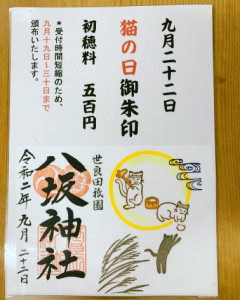 九月二十二日
猫の日御朱印
初穂料 五百円
*受付時間短縮のため、
九月十九日～三十日まで
頒布いたします。
世良田祇園
八坂神社
令和二年九月二十二日